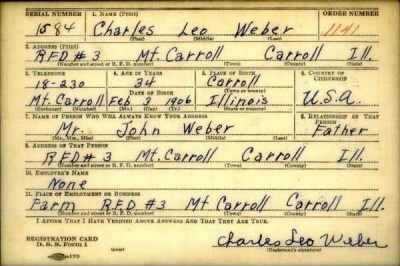 SERIAL NUMBER 1. NAME (Print) ORDER NUMBER
1584 Charles Leo Weber 1141
(First) (Middle) (Last)
2. ADDRESS (Print)
RFD # 3 Mt. Carroll Carroll Ill.
(Number and street or R. F. D. number) (Town) (County) (State)
3. TELEPHONE 4. AGE IN YEARS 5. PLACE OF BIRTH 6. COUNTRY OF CITIZENSHIP
18-230 34 Carroll
DATE OF BIRTH (Town or county)
Mt. Carroll Feb 3 1906 Illinois U.S.A.
(Exchange) (Number) (Mo.) (Day) (Yr.) (State or country)
7. NAME OF PERSON WHO WILL ALWAYS KNOW YOUR ADDRESS 8. RELATIONSHIP OF THAT PERSON
Mr. John Weber Father
(Mr., Mrs., Miss) (First) (Middle) (Last)
9. ADDRESS OF THAT PERSON
RFD# 3 Mt. Carroll Carroll Ill.
(Number and street or R. F. D. number) (Town) (County) (State)
10. EMPLOYER'S NAME
None
11. PLACE OF EMPLOYMENT OR BUSINESS
Farm R.F.D #3 Mt Carroll Carroll Ill.
(Number and street or R. F. D. number) (Town) (County) (State)
I AFFIRM THAT I HAVE VERIFIED ABOVE ANSWERS AND THAT THEY ARE TRUE.
REGISTRATION CARD
D. S. S. Form 1 (over) Charles Leo Weber
(Registrant's signature)